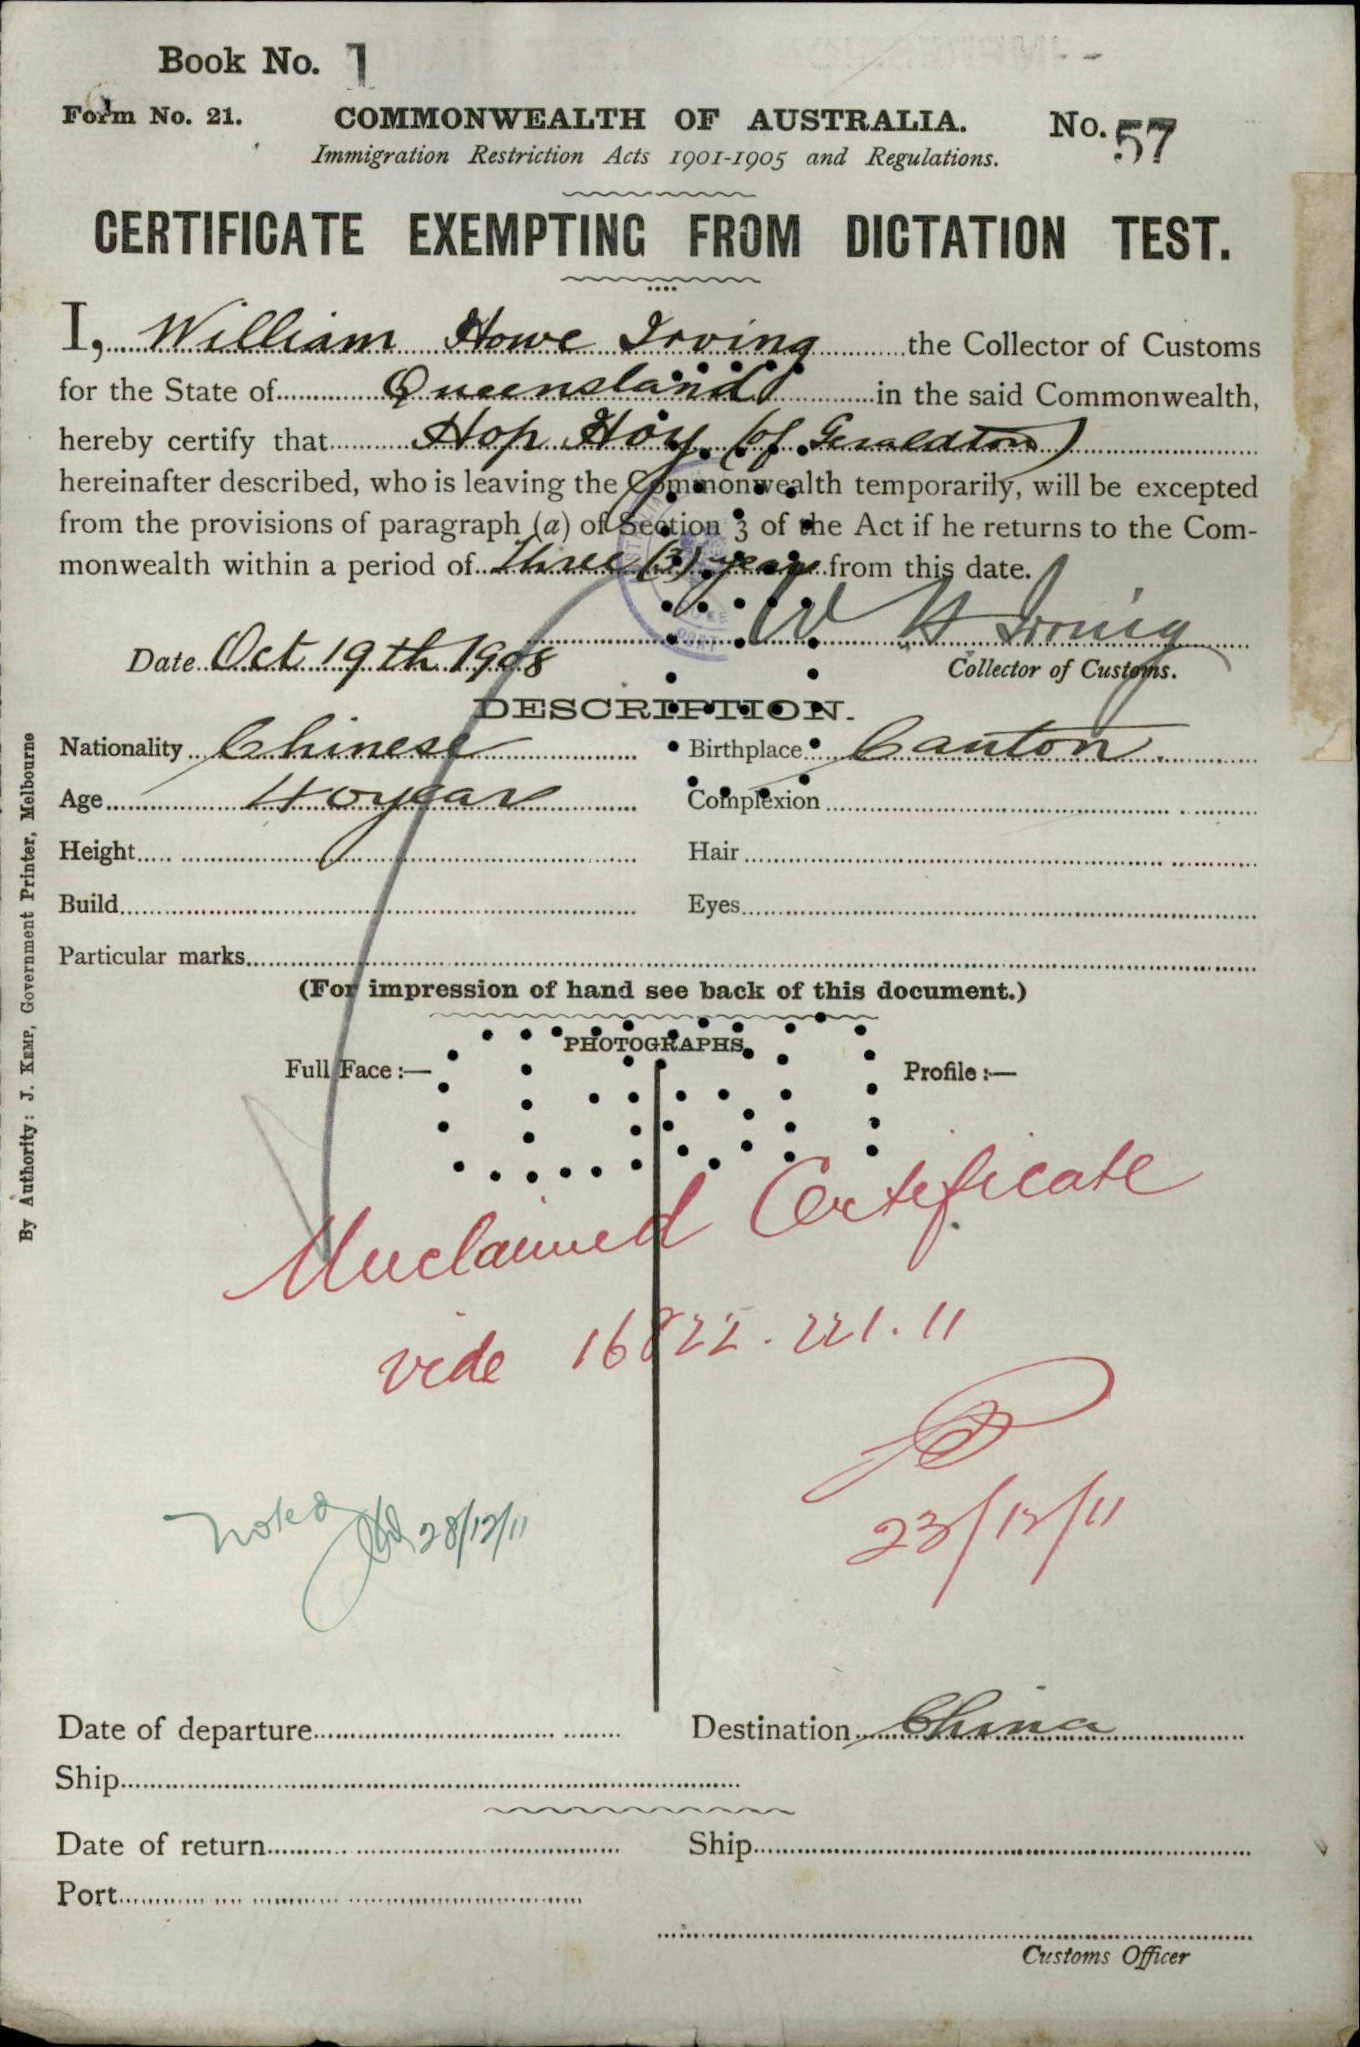 Book No. 1
Form No. 21.
COMMONWEALTH OF AUSTRALIA.
No. 57
Immigration Restriction Acts 1901-1905 and Regulations.
CERTIFICATE EXEMPTING FROM DICTATION TEST.
I, William Howe Irving the Collector of Customs
for the State of Queensland in the said Commonwealth,
hereby certify that Hop Hoy (of Geraldton)
hereinafter described, who is leaving the Commonwealth temporarily, will be excepted
from the provisions of paragraph (a) of Section 3 of the Act if he returns to the Com-
monwealth within a period of three (3) years from this date.
W H Irving
Date Oct 19th 1908
Collector of Customs.
DESCRIPTION.
Nationality Chinese Birthplace Canton
Age 40 years Complexion
Height Hair
Build Eyes
Particular marks
(For impression of hand see back of this document.)
PHOTOGRAPHS
Full Face :— Profile :—
Unclaimed Certificate
vide 16822. 221. 11
23/12/11
Noted 28/12/11
Date of departure Destination China
Ship
Date of return Ship
Port
Customs Officer
By Authority: J. KEMP, Government Printer, Melbourne